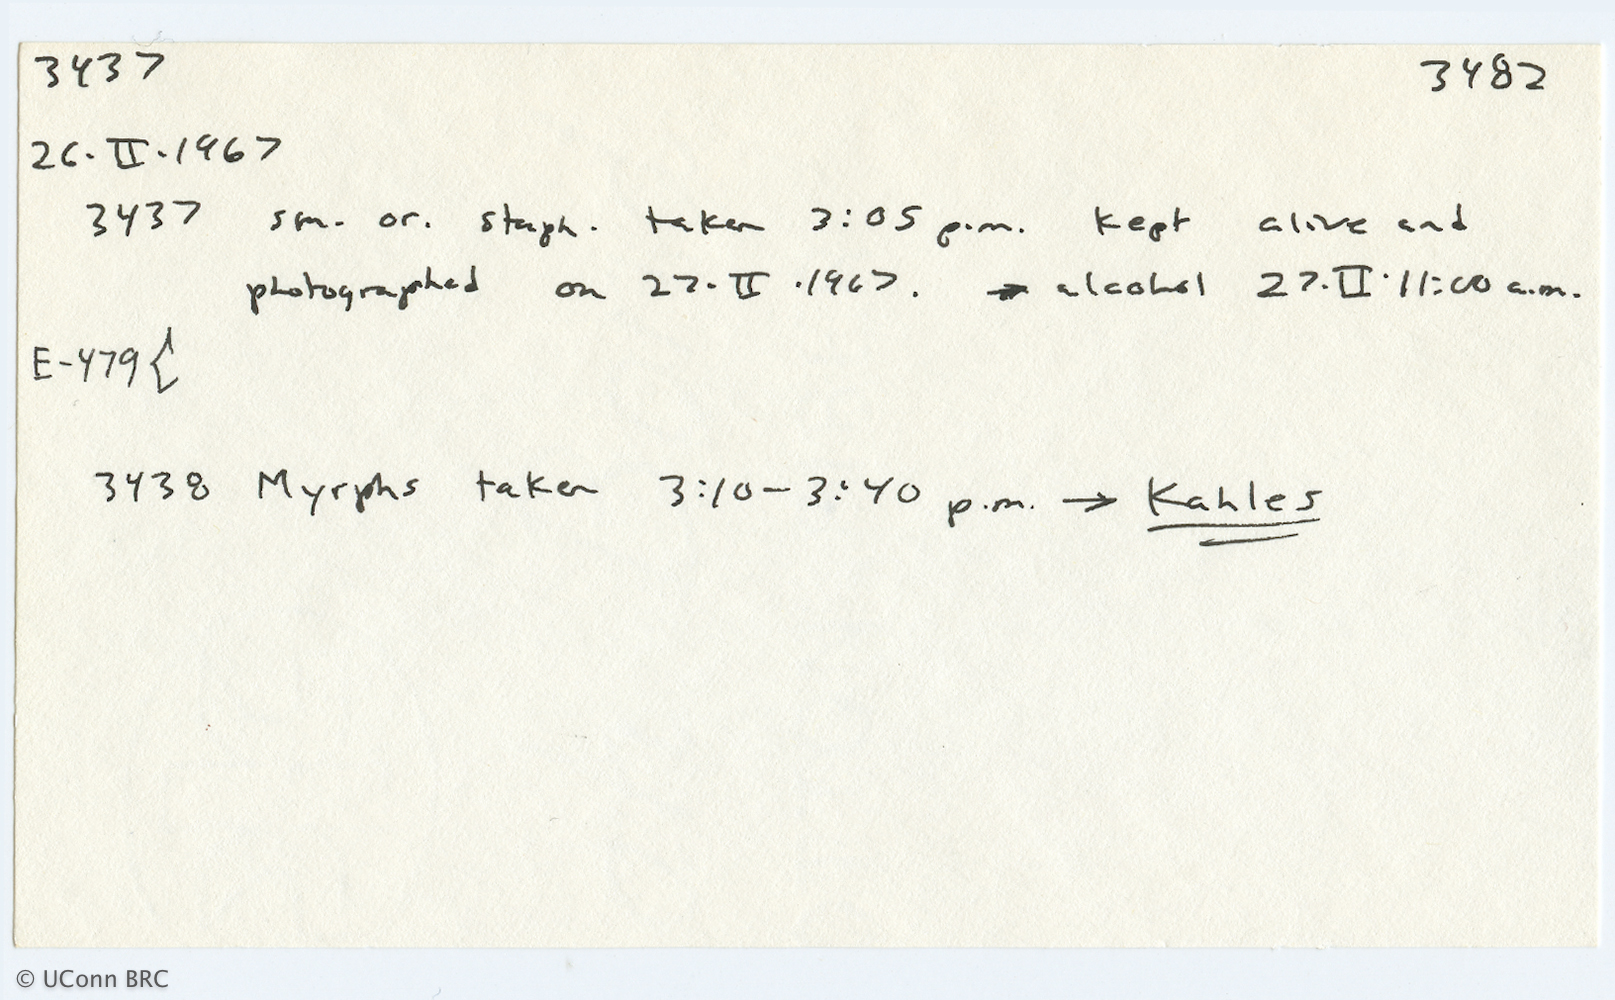 3437 3482
26.II.1967
3437 sm. or. staph. taken 3:05 p.m. kept alive and
photographed on 27.II.1967. → alcohol 27.II.11:00 a.m.
E-479{
3438 Myrphs taken 3:10-3:40 p.m. → Kahles
© UConn BRC